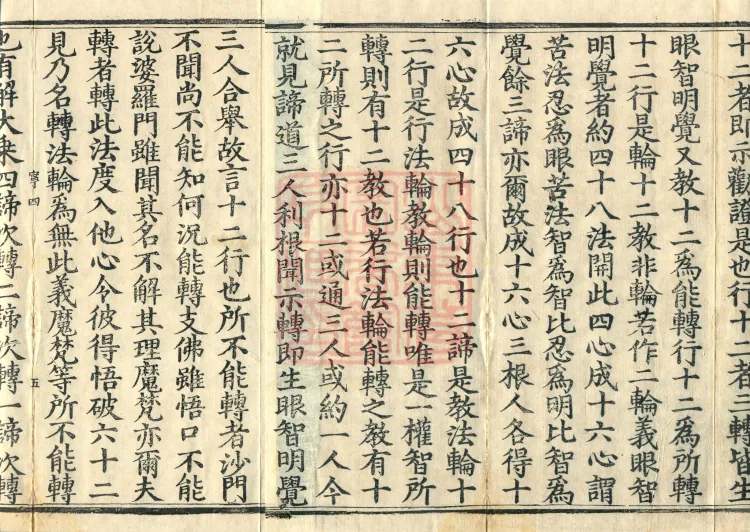 十二者即示勸證是也行十二者三轉皆生
眼智明覺又教十二為能轉行十二為所轉
十二行是輪十二教非輪若作二輪義眼智
明覺者約四十八法開此四心成十六心謂
苦法忍為眼苦法智為智比忍為明比智為
覺餘三諦亦爾故成十六心三根人各得十
六心故成四十八行也十二諦是教法輪十
二行是行法輪教輪則能轉唯是一權智所
轉則有十二教也若行法輪能轉之教有十
二所轉之行亦十二或通三人或約一人今
就見諦道三人利根聞示轉即生眼智明覺
三人合舉故言十二行也所不能轉者沙門
不聞尚不能知何況能轉支佛雖悟口不能
說婆羅門雖聞其名不解其理魔梵亦爾夫
轉者轉此法度入他心令彼得悟破六十二
見乃名轉法輪為無此義魔梵等所不能轉
寧四 五
也有解大乘四諦次轉二諦次轉一諦次轉